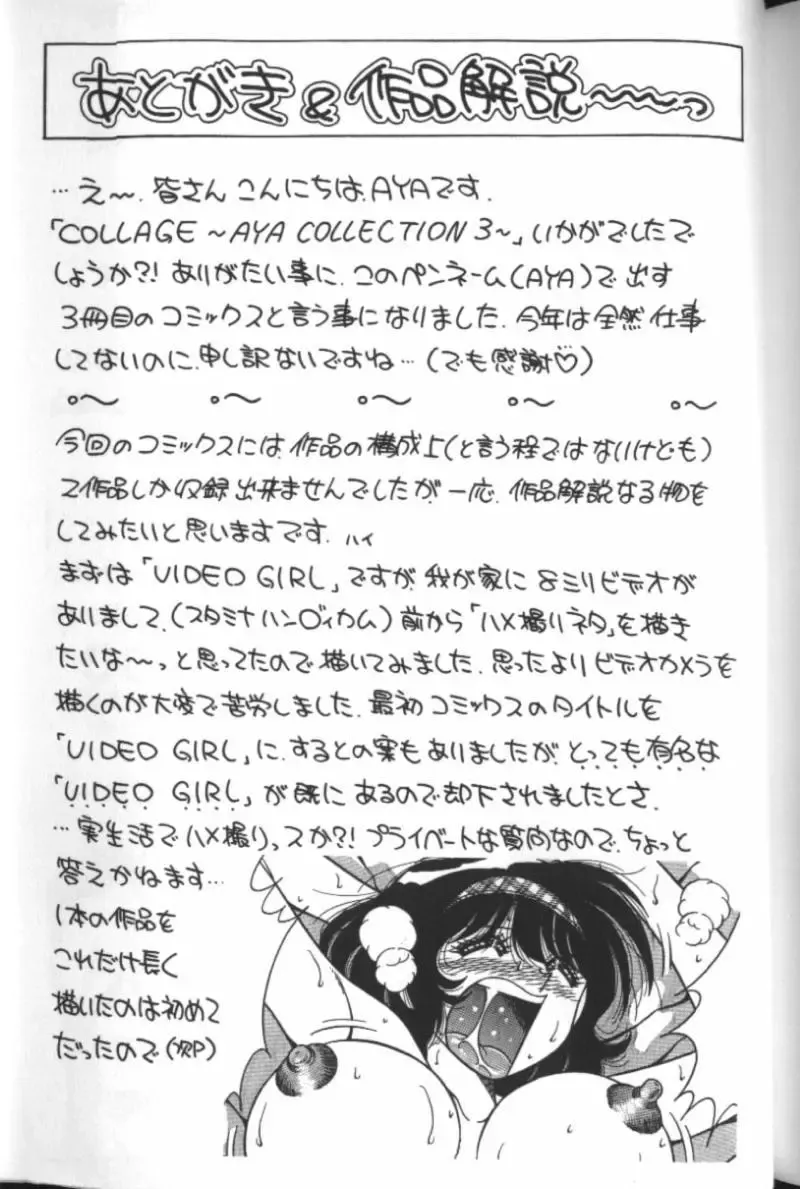 あとがき&作品解説〜〜〜っ
…え〜、皆さんこんにちは、AYAです。
「COLLAGE 〜AYA COLLECTION 3〜」いかがでしたで
しょうか?! ありがたい事に、このペンネーム(AYA)で出す
3冊目のコミックスと言う事になりました。今年は全然仕事
してないのに、申し訳ないですね…(でも感謝♡)
今回のコミックスには、作品の構成上(と言う程ではないけども)
2作品しか収録出来ませんでしたが、一応、作品解説なる物を
してみたいと思いますです。ハイ
まずは「VIDEO GIRL」ですが、我が家に8ミリビデオが
ありまして、(スタミナハン〇ィカム)前から「ハメ撮りネタ」を描き
たいな〜っと思ってたので描いてみました。思ったよりビデオカメラを
描くのが大変で苦労しました。最初コミックスのタイトルを
「VIDEO GIRL」に、するとの案もありましたが、とっても有名な
「VIDEO GIRL」が既にあるので却下されましたとさ。
…実生活でハメ撮りっスか?! プライベートな質問なので、ちょっと
答えかねます…
1本の作品を
これだけ長く
描いたのは初めて
だったので(次P)